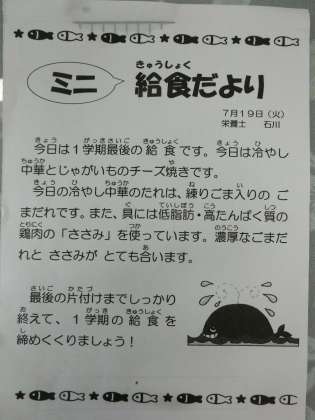 ミニ 給食だより
7月19日（火）
栄養士 石川
今日は1学期最後の給食です。今日は冷やし
中華とじゃがいものチーズ焼きです。
今日の冷やし中華のたれは、練りごま入りの ご
まだれです。また、具には低脂肪・高たんぱく質の
鶏肉の「ささみ」を使っています。濃厚なごまだ
れと ささみが とても合います。
最後の片付けまでしっかり
終えて、1学期の給食を
締めくくりましょう！